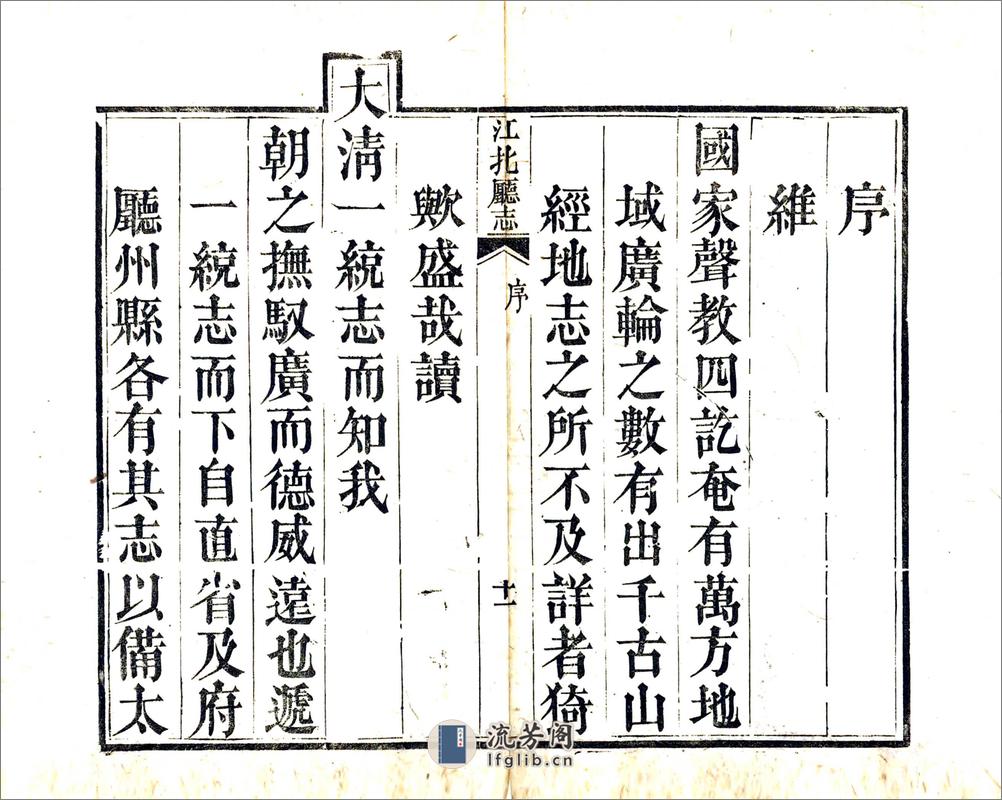 序
維
國家聲教四訖奄有萬方地
域廣輪之數有出千古山
經地志之所不及詳者猗
江北廳志
序
十一
歟盛哉讀
大清一統志而知我
朝之撫馭廣而德威遠也遞
一統志而下自直省及府
廳州縣各有其志以備太
流芳阁
lfglib.cn